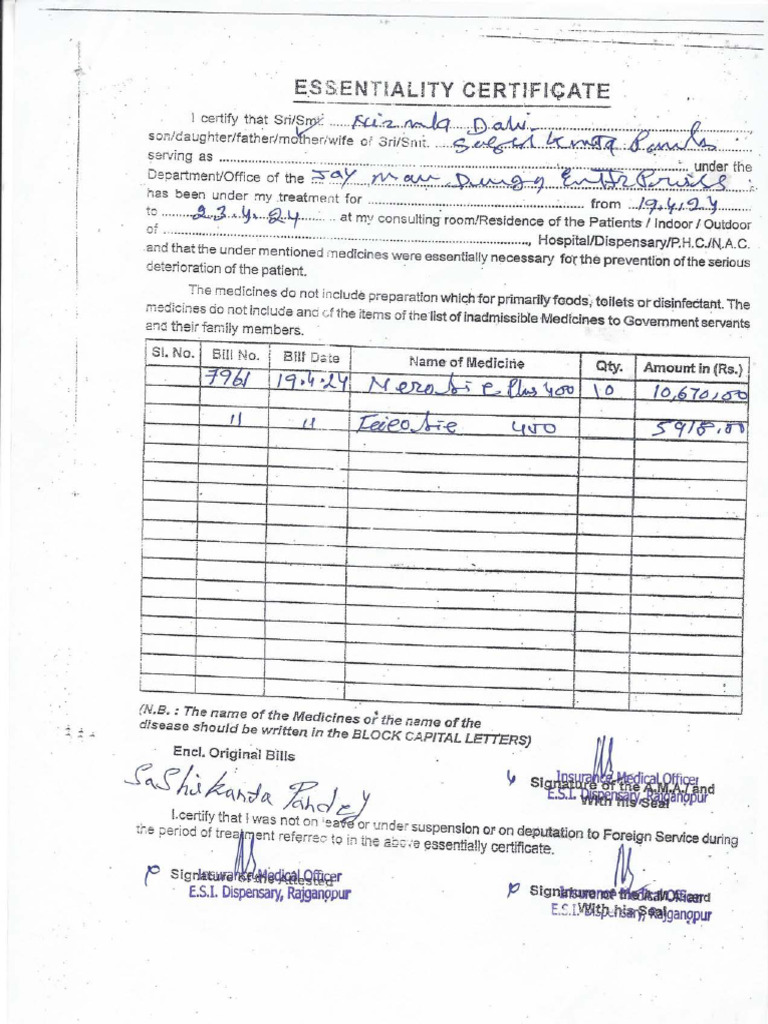 ESSENTIALITY CERTIFICATE
I certify that Sri/Smt. Nirmala Dabi
son/daughter/father/mother/wife of Sri/Smt. Kanta
serving as under the
Department/Office of the Jay Maa Durga
has been under my treatment for from 19.4.24
to 23.4.24 at my consulting room/Residence of the Patients / Indoor / Outdoor
of , Hospital/Dispensary/P.H.C./N.A.C.
and that the under mentioned medicines were essentially necessary for the prevention of the serious
deterioration of the patient.
The medicines do not include preparation which for primarily foods, toilets or disinfectant. The
medicines do not include and of the items of the list of inadmissible Medicines to Government servants
and their family members.
Sl. No. Bill No. Bill Date Name of Medicine Qty. Amount in (Rs.)
7961 19.4.24 Plus 400 10 10,670,00
" " 400 5918.00
(N.B. : The name of the Medicines or the name of the
disease should be written in the BLOCK CAPITAL LETTERS)
Encl. Original Bills
SaShikanta Pandey
Signature of the A.M.A./ and
With his Seal
Insurance Medical Officer
E.S.I. Dispensary, Rajganopur
I certify that I was not on leave or under suspension or on deputation to Foreign Service during
the period of treatment referred to in the above essentially certificate.
Signature of the Attested
Insurance Medical Officer
E.S.I. Dispensary, Rajganopur
Signature of the A.M.A. and
With his Seal
Insurance Medical Officer
E.S.I. Dispensary, Rajganopur